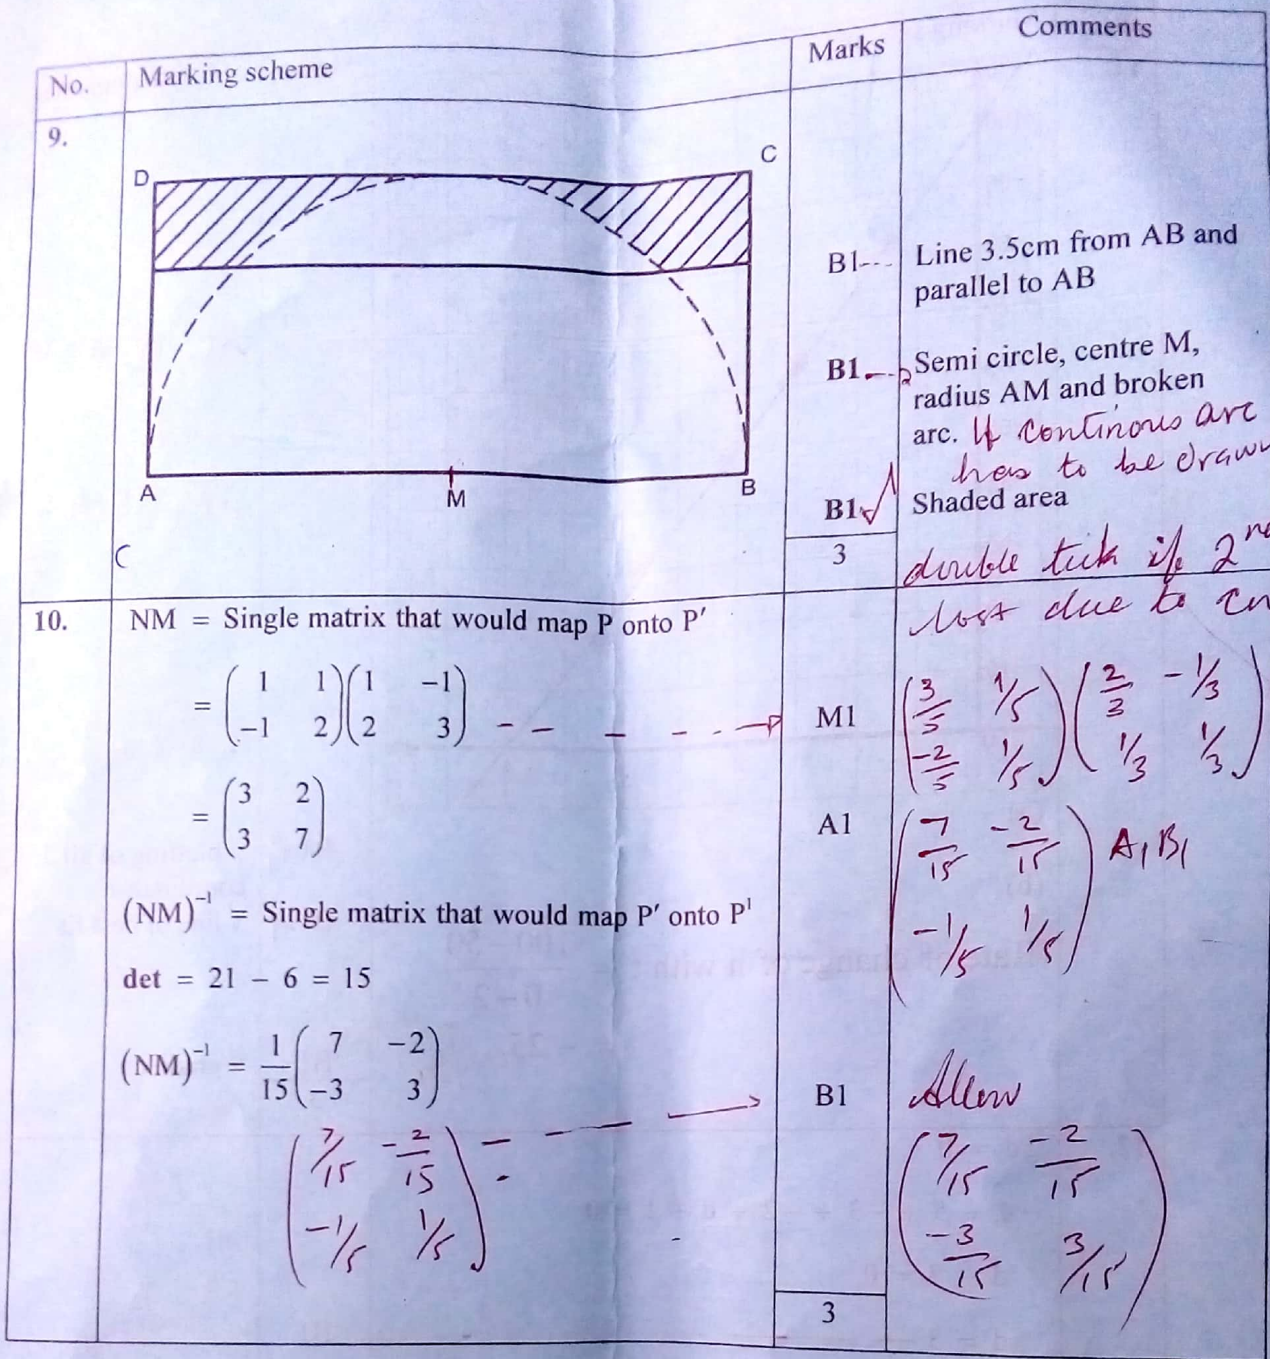 No. Marking scheme Marks Comments
9.
D C
B1--- Line 3.5cm from AB and
parallel to AB
B1 Semi circle, centre M,
radius AM and broken
arc. If continous arc
has to be drawn
A M B
B1 Shaded area
3
double tick if 2nd
lost due to
10. NM = Single matrix that would map P onto P′
= ( 1 1 ) ( 1 −1 )
( −1 2 ) ( 2 3 )
M1
( 3/5 1/5 ) ( 2/3 -1/3 )
( -2/5 1/5 ) ( 1/3 1/3 )
= ( 3 2 )
( 3 7 )
A1
( 7/15 -2/15 ) A1 B1
( -1/5 1/5 )
(NM)⁻¹ = Single matrix that would map P′ onto P¹
det = 21 − 6 = 15
(NM)⁻¹ = 1/15 ( 7 −2 )
( −3 3 )
B1 Allow
( 7/15 -2/15 )
( -1/5 1/5 )
( 7/15 -2/15 )
( -3/15 3/15 )
3